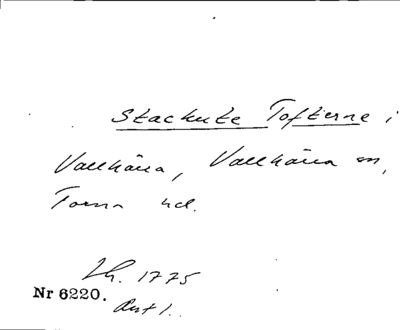 Stackute Tofterne i
Vallkärra, Vallkärra sn,
Torna hd.
Lh. 1775
Nr 6220.
Akt 1.